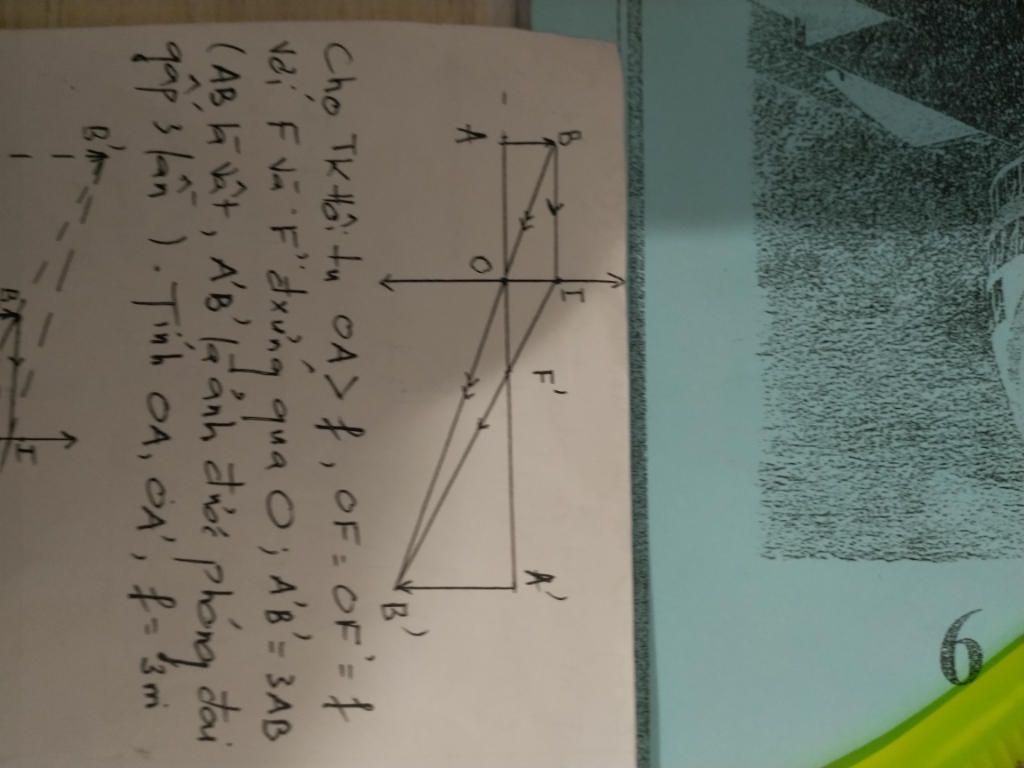 B
I
A
O
F'
A'
B'
Cho TK Hội tụ OA > f, OF = OF' = f
với F và F' đxứng qua O; A'B' = 3AB
(AB là vật, A'B' là ảnh được phóng đại
gấp 3 lần). Tính OA, OA', f = 3m
B'
B
I
6